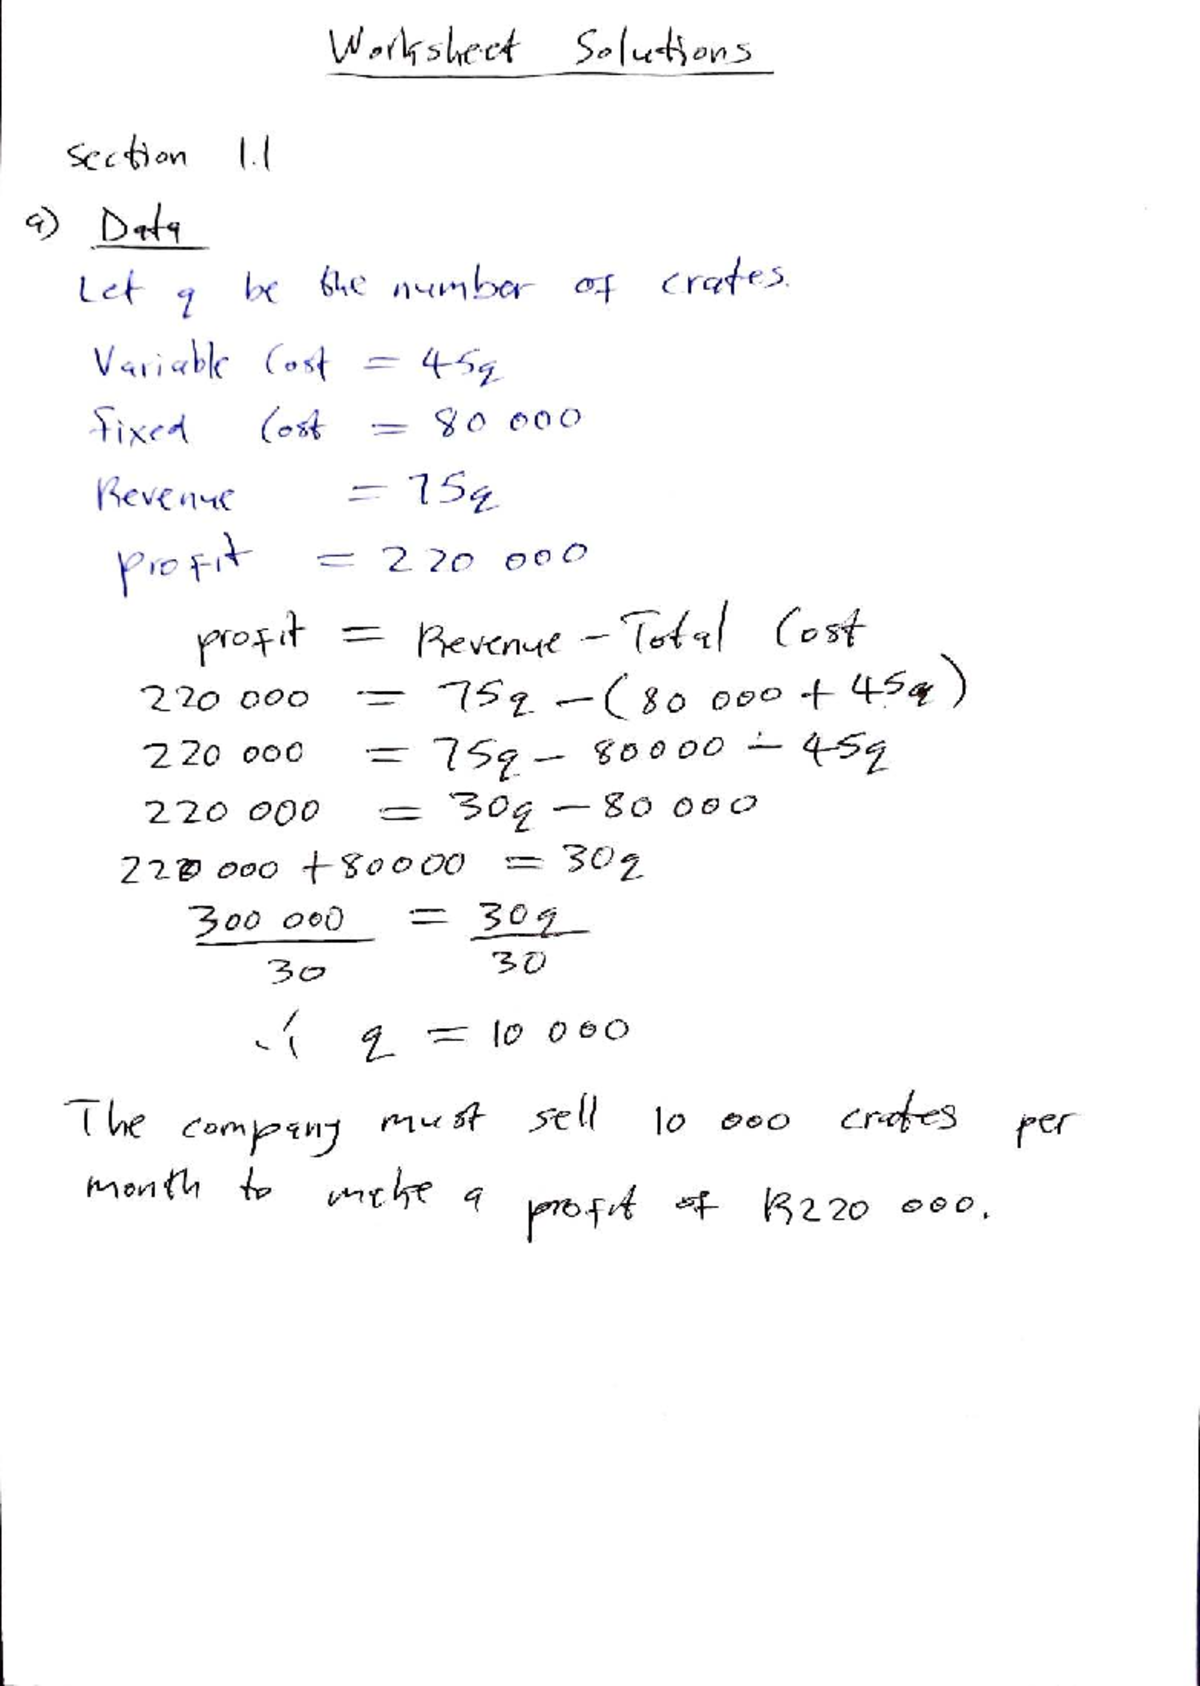 Worksheet Solutions
Section 1.1
a) Data
Let q be the number of crates.
Variable Cost = 45q
Fixed Cost = 80 000
Revenue = 75q
profit = 220 000
profit = Revenue - Total Cost
220 000 = 75q - (80 000 + 45q)
220 000 = 75q - 80000 - 45q
220 000 = 30q - 80 000
220 000 + 80000 = 30q
300 000 = 30q
30 30
∴ q = 10 000
The company must sell 10 000 crates per
month to make a profit of R220 000.